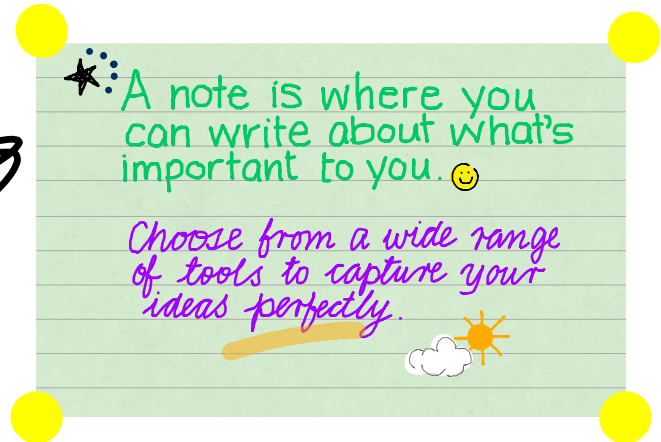 A note is where you
can write about what's
important to you.
Choose from a wide range
of tools to capture your
ideas perfectly.